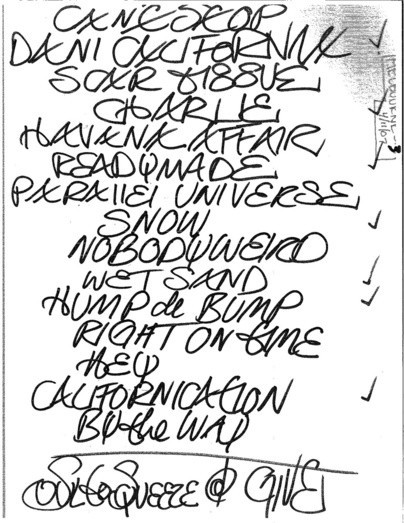 CANT STOP
DANI CALIFORNIA
SCAR TISSUE
CHARLIE
HAVANA AFFAIR
READYMADE
PARAllEl UNIVERSE
SNOW
NOBODY WEIRD
WET SAND
HUMP de BUMP
RIGHT ON tIME
HEY
CALIFORNICATION
BY the WAY
SOUL to SQUEEZE @ GIVE
MELBOURNE-3
4/11/07